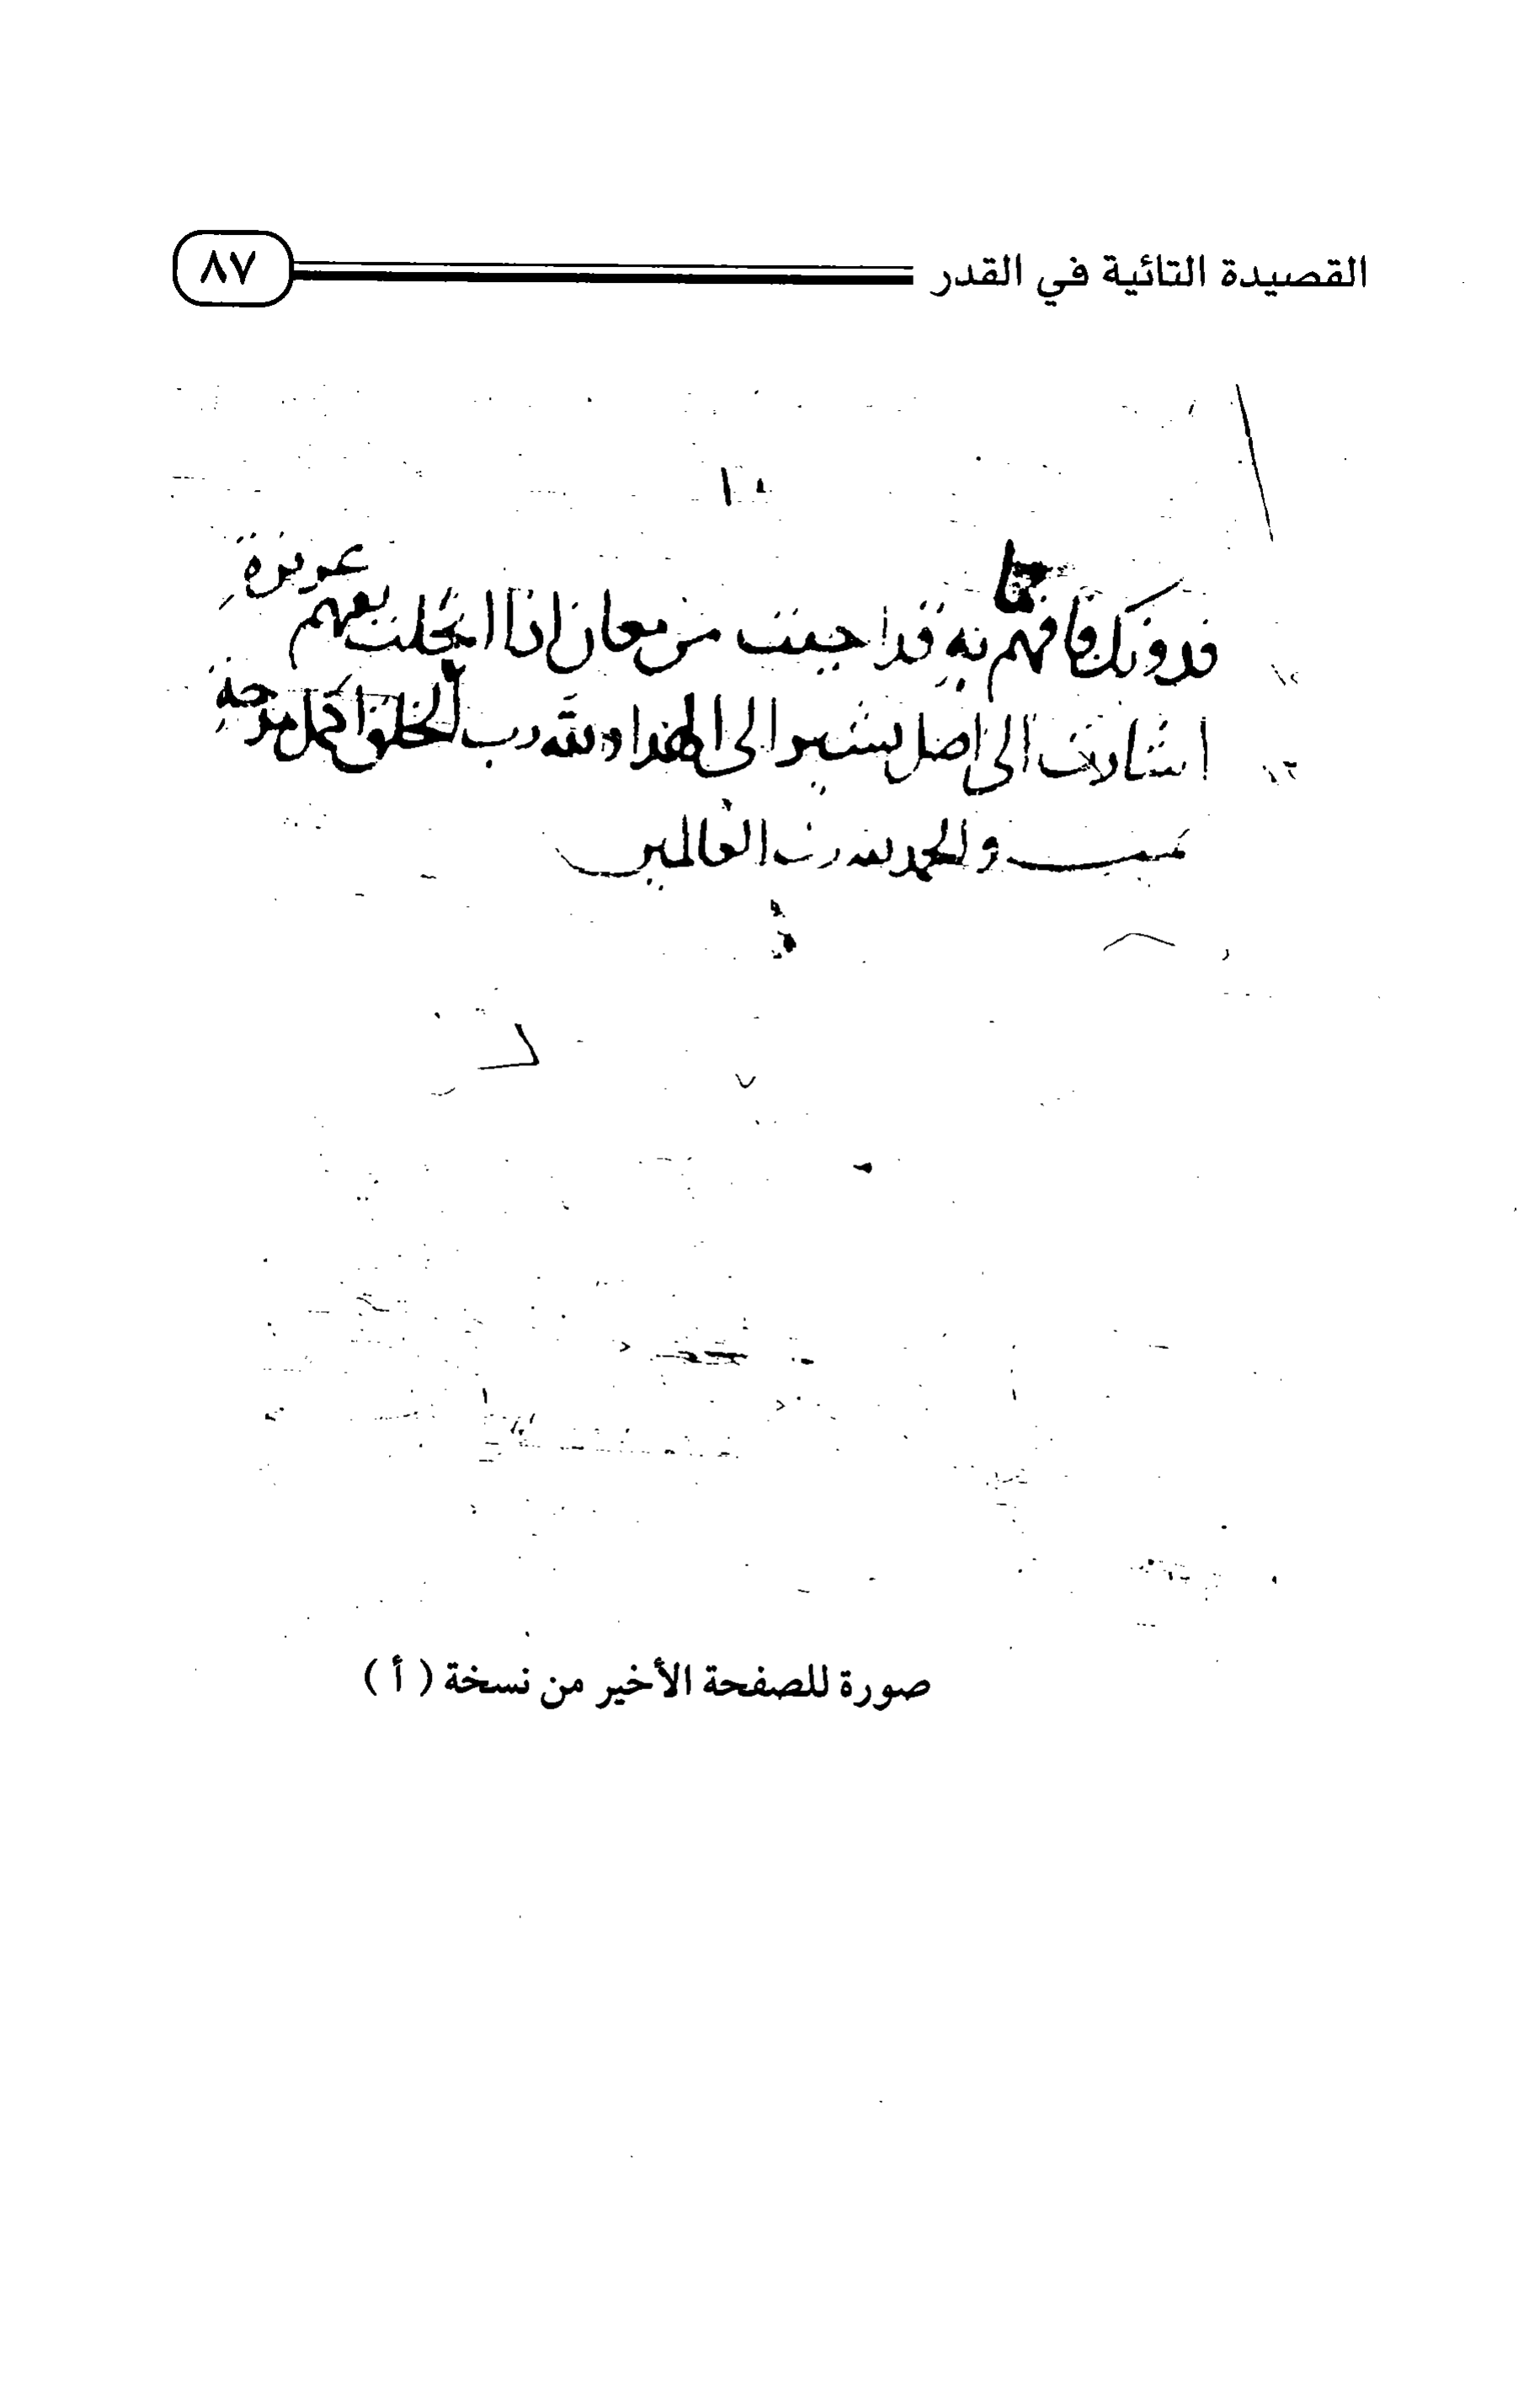 القصيدة التائية في القدر ٨٧
فدونك فافهم ما به قد اجبت من معان اذا انحلت بفهم عريزة
اشارت الى اصل يشير الى الهدا ولله رب الخلق اكمل مدحة
تمت والحمد لله رب العالمين
صورة للصفحة الأخير من نسخة ( أ )